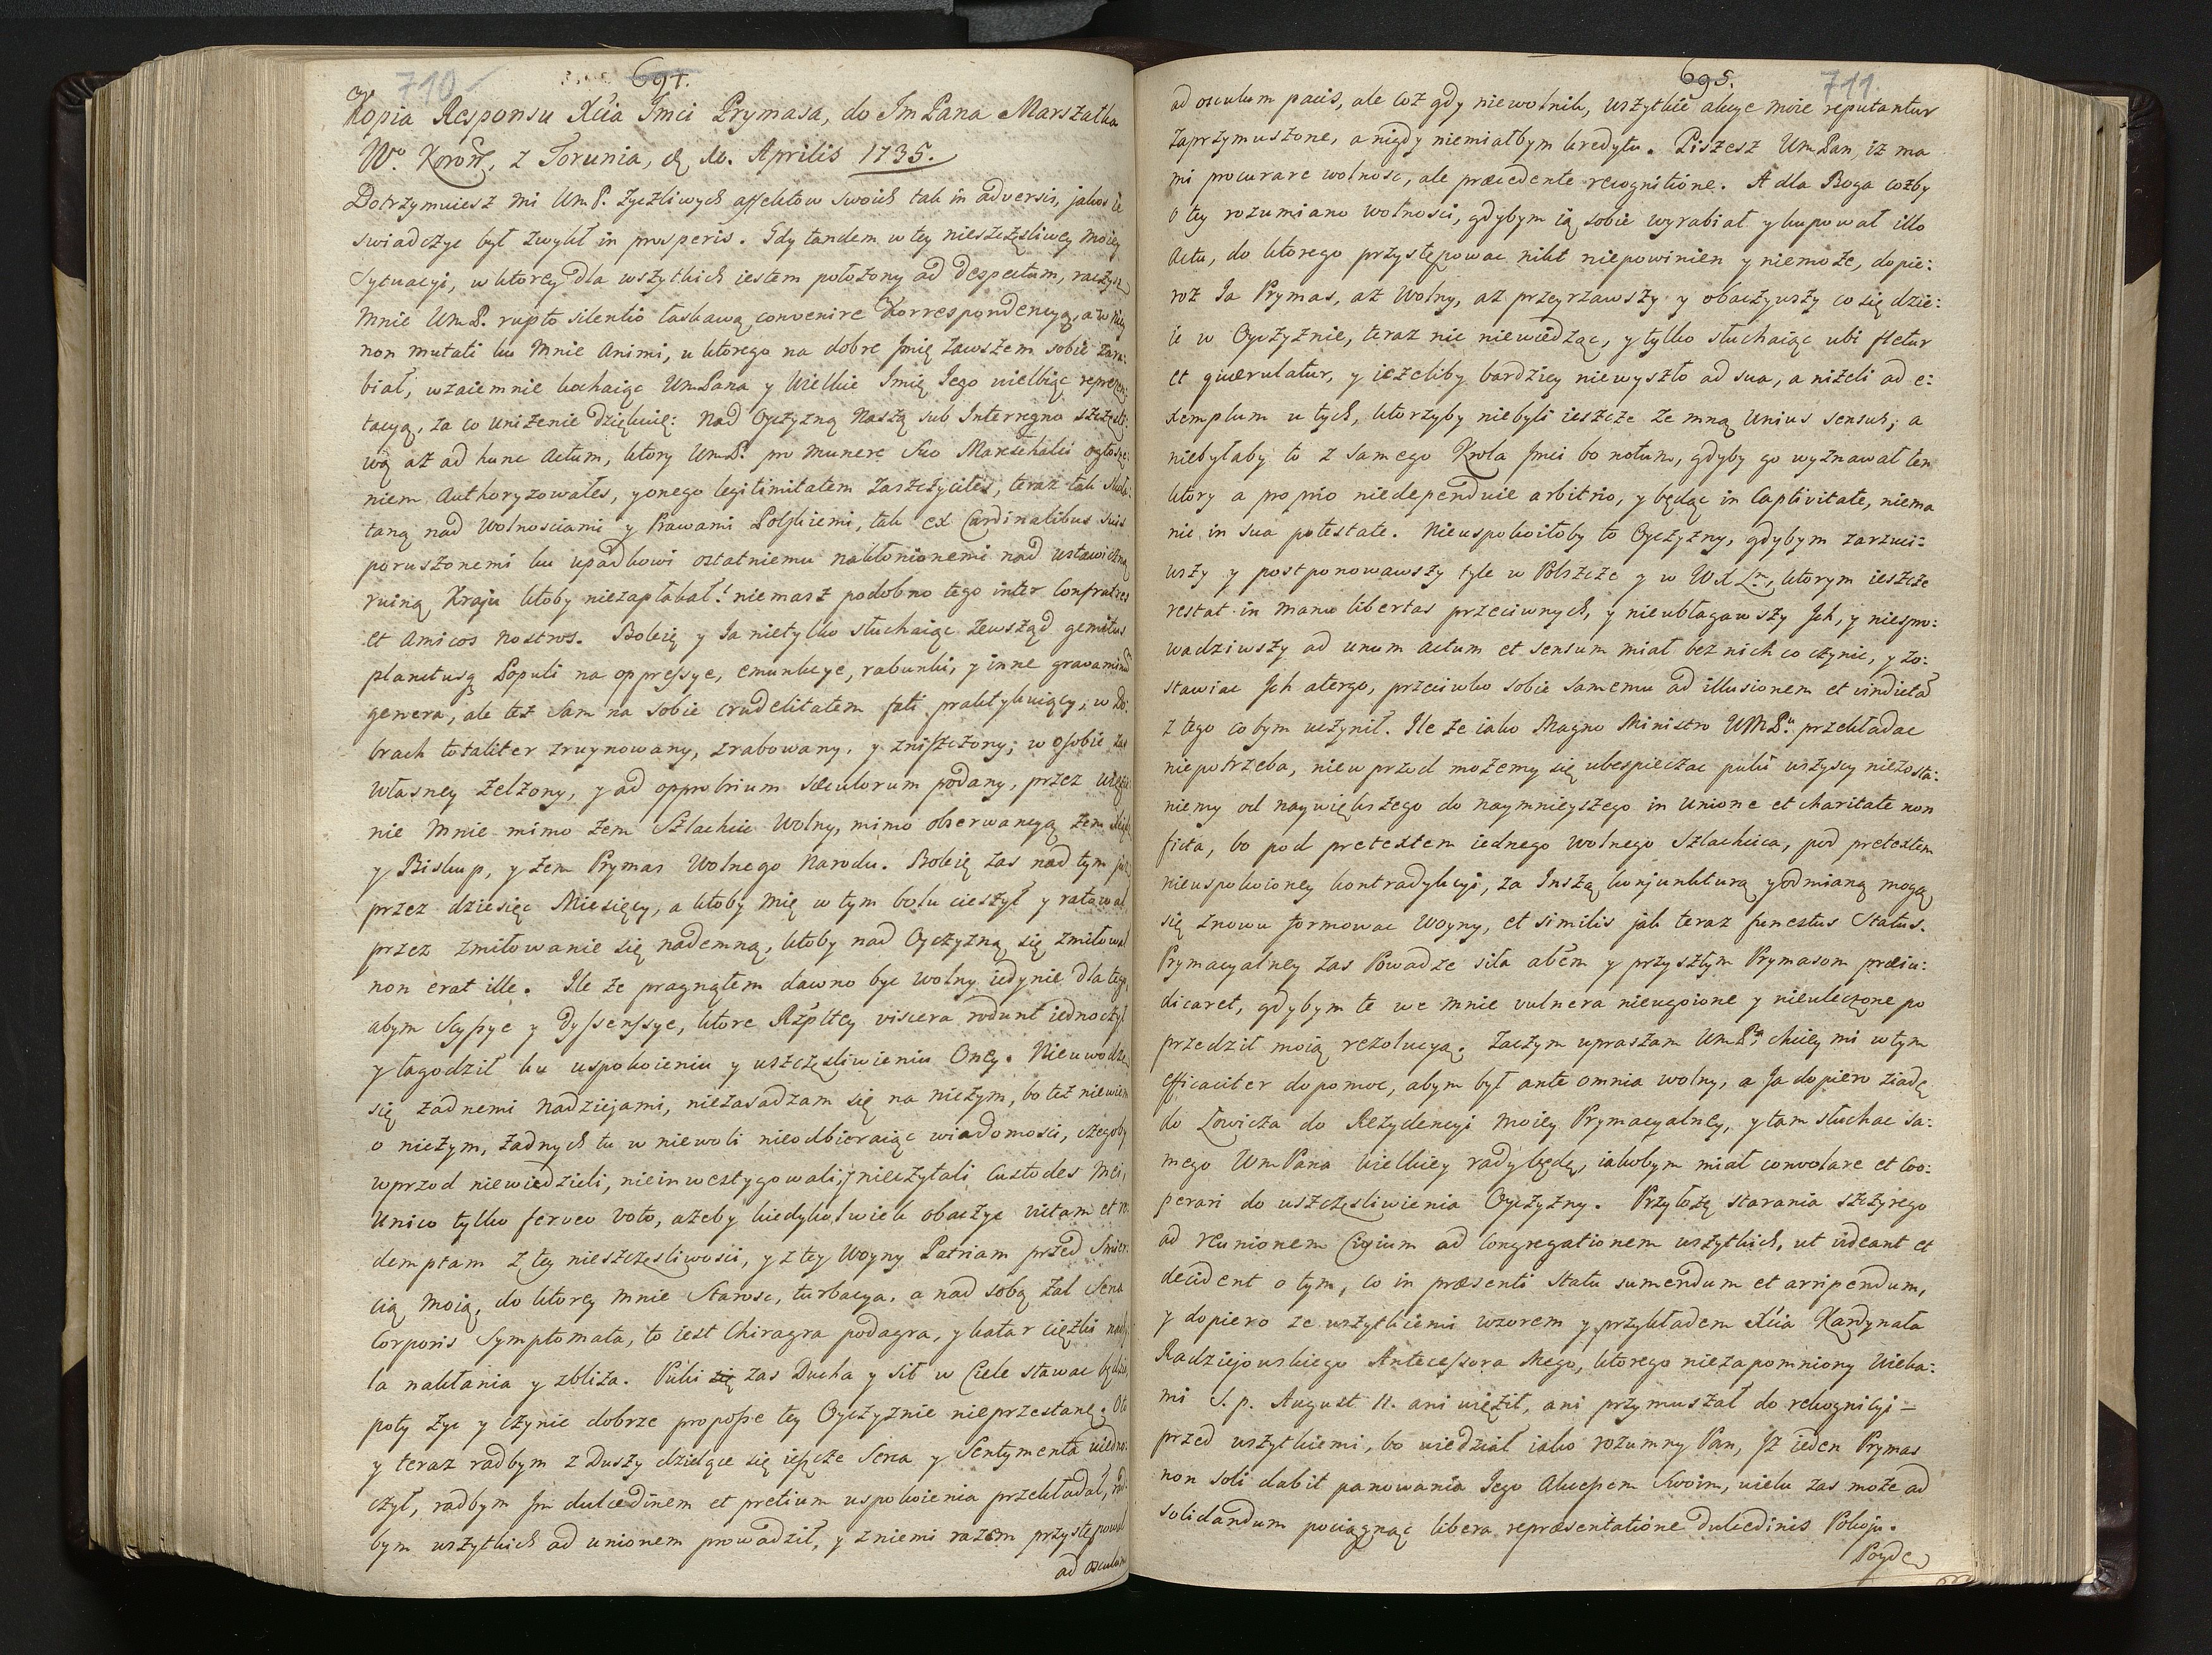 710
694.
Kopia Responsu Xcia Jmci Prymasa, do Jm Pana Marszałka
Wo. Koron, z Torunia, d. Aprilis 1735.
Dotrzymuiesz mi Um P. życzliwych affektow swoich tak in adversis, jakoś ie
swiadczyc był zwykł in prosperis. Gdy tandem w tey nieszczęsliwey moiey
Sytuacyi, w ktorey dla wszytkich iestem położony ad despectum, raczysz
mnie Um P. rupto silentio łaskawą convenire korrespondencyą, a w niey
non mutati ku mnie Animi, u ktorego na dobre Jmię zawszem sobie zara:
biał, wzaiemnie kochaiąc Um Pana y Wielkie Imię Jego wielbiąc reprezen:
tacyą, za co uniżenie dziękuię: Nad Oyczyzną Naszą sub Interregno szczęsli:
wą aż ad hunc Actum, ktory Um P. pro munere Suo Mareschalii ogłosze:
niem Authoryzowałes, y onego legitimitatem zaszczyciłes, teraz tak
taną nad Wolnosciami y Prawami Polskiemi, tak ex Cardinalibus suis
poruszonemi ku upadkowi ostatniemu nakłonionemi nad ustawiczną
ruiną Kraju ktoby niezapłakał! niemasz podobno tego inter Confratres
et Amicos nostros. Boleię y Ja nietylko słuchaiąc zewsząd gemitus
planctusq Populi na oppressye, emunkcye, rabunki, y inne gravaminu
genera, ale też sam na sobie crudelitatem fati praktykuiący; w Do:
brach totaliter zruynowany, zrabowany, y zniszczony; w osobie zas
własney zelżony, y ad opprobrium saeculorum podany, przez więze
nie mnie mimo żem Szlachcic Wolny, mimo obserwancyą żem
y Biskup, y żem Prymas Wolnego Narodu. Boleię zas nad tym już
przez dziesięc Miesięcy, a ktoby mię w tym bolu cieszył y ratował
przez zmiłowanie się nademną, ktoby nad Oyczyzną się zmiłował
non erat ille. Ile że pragnąłem dawno byc wolny iedynie dla tego,
abym Scyssye y Dyssensye, ktore Rzpltey viscera rodunt iednoczył
y łagodził ku uspokoieniu y uszczęsliwieniu Oney. Nieuwodzę
się żadnemi nadziejami, niezasadzam się na niczym, bo też niewiem
o niczym, żadnych tu w niewoli nieodbieraiąc wiadomosci, czegoby
wprzod niewiedzieli, nieinwestygowali, y nieczytali Custodes mei,
Unico tylko ferveo voto, ażeby kiedykolwiek obaczyc victam et re
demptam z tey nieszczęsliwosci, y z tey Woyny Patriam przed smier:
cią moią, do ktorey mnie Starosc, turbacya, a nad sobą żal Sena
Corporis Symptomata, to iest Chiragra podagra, y katar cięzki
la nakłania y zbliża. Puki zas Ducha y sił w Ciele stawac będzie,
poty życ y czynic dobrze proposse tey Oyczyznie nieprzestanę. Oto
y teraz radbym z Duszy dzielące się ieszcze Serca y Sentymenta iedno:
czył, radbym Jm dulcedinem et pretium uspokoienia przekładał, rad
bym wszytkich ad unionem prowadził, y z niemi razem przystępował
ad osculum
695.
711.
ad osculum pacis, ale coż gdy niewolnik, wszytkie akcye moie reputantur
zaprzymuszone, a nigdy niemiałbym kredytu. Piszesz Um Pan, iż ma
mi procurare wolnosc, ale praecedente recognitione. A dla Boga cożby
o tey rozumiano wolnosci, gdybym ią sobie wyrabiał y kupował illo
Actu, do ktorego przystępowac nikt niepowinien y niemoże, dopie:
roż Ja Prymas, aż Wolny, aż przeyrzawszy y obaczywszy co się dzie:
ie w Oyczyznie, teraz nic niewiedząc, y tylko słuchaiąc ubi fletur
et quaerulatur, y ieżeliby bardziey niewyszło ad sua, a niżeli ad e:
xemplum u tych, ktorzyby niebyli ieszcze ze mną Unius sensus; a
niebyłaby to z samego Krola Jmci bo notum, gdyby go wyznawał ten
ktory a proprio niedependuie arbitrio, y będąc in Captivitate, niema
nic in sua potestate. Nieuspokoiłoby to Oyczyzny, gdybym zarzuci:
wszy y postponowawszy tyle w Polszcze y w W X Ltt, ktorym ieszcze
restat in manu libertas przeciwnych, y nieubłagawszy Jch, y niespro:
wadziwszy ad unum actum et sensum miał bez nich co czynic, y zo:
stawiac Jch atergo, przeciwko sobie samemu ad illusionem et vindictã
z tego cobym uczynił. Ile że iako Magno Ministro UMPu przekładac
niepotrzeba, niewprzod możemy się ubespieczac puki wszyscy niezosta:
niemy od naywiększego do naymnieyszego in Unione et charitate non
ficta, bo pod pretextem iednego wolnego Szlachcica, pod pretextem
nieuspokoioney kontradykcyi, za Inszą konjunkturą y odmianą mogą
się znowu formowac Woyny, et similis jak teraz funestus Status.
Prymacyalney zas Powadze siła abem y przyszłym Prymasom praeju:
dicaret, gdybym te we mnie vulnera nieugoione y nieuleczone po
przedził moią rezolucyą. Zaczym upraszam Um Pa chciey mi w tym
efficaciter dopomoc, abym był ante omnia wolny, a Ja dopiero ziadę
do Łowicza do Rezydencyi moiey Prymacyalney, y tam słuchac sa:
mego Um Pana wielkiey rady będę, iakobym miał convolare et Coo:
perari do uszczęsliwienia Oyczyzny. Przyłożę starania szczyrego
ad reunionem Civium ad congregationem wszytkich, ut videant et
decident o tym, co in praesenti Statu sumendum et arripendum,
y dopiero ze wszytkiemi wzorem y przykładem Xcia Kardynała
Radziejowskiego Antecessora Mego, ktorego niezapomniony Wieka:
mi S. p. August II. ani więził, ani przymuszał do rekognicyi –
przed wszytkiemi, bo wiedział iako rozumny Pan, Jż ieden Prymas
non soli dabit panowania Jego Akcessem Swoim, wielu zas może ad
solidandum pociągnąc libera repraesentatione dulcedinis Pokoju.
Poyde